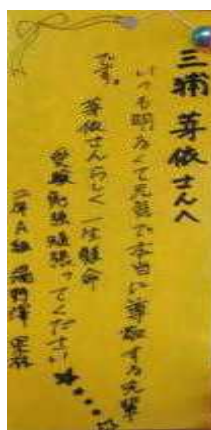 三浦 芽依さんへ
いつも明るくて元気で本当に尊敬する先輩
です。
芽依さんらしく一生懸命
受験勉強頑張ってください
二年A組